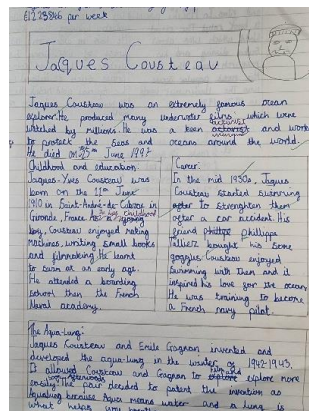 per week
Jaques Cousteau
Jaques Cousteau was an extremely famous ocean
explorer. He produced many underwater films which were
watched by millions. He was a keen activist and work
to protect the seas and oceans around the world.
He died on 25th June 1997
Childhood and education
Jaques-Yves Cousteau was
born on the 11th June
1910 in Saint-André-de-Cubzac in
Gironde, France. As a young
In his childhood
boy, Cousteau enjoyed making
machines, writing small books
and filmmaking. He learnt
to swim at an early age.
He attended a boarding
school then the French
Naval academy.
Career:
In the mid 1930s, Jaques
Cousteau started swimming
after to strengthen them
after a car accident. His
friend philippe Philippe
Tailliez bought him some
goggles. Cousteau enjoyed
swimming with them and it
inspired his love for the ocean
He was training to become
a French navy pilot.
The Aqua-lung:
Jaques Cousteau and Emile Gagnan invented and
developed the aqua-lung in the winter of 1942-1943.
It allowed Cousteau and Gagnan to explore more
easily. The pair decided to patent the invention as
Aqualung because Aqua means water and a lung is
what helps you